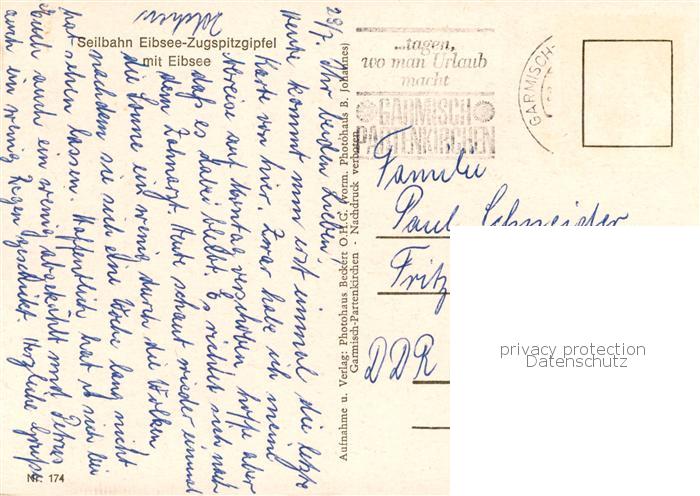 Seilbahn Eibsee-Zugspitzgipfel
mit Eibsee
28/7. Ihr beiden Lieben!
Heute kommt nun erst einmal die letzte
Karte von hier. Zwar habe ich meine
Abreise auf Montag verschoben, hoffe aber
daß es dabei bleibt. Es richtet sich nach
dem Zahnarzt. Heute schaut wieder einmal
die Sonne ein wenig durch die Wolken
nachdem sie sich eine Woche lang nicht
hat sehen lassen. Hoffentlich hat es sich bei
Euch auch ein wenig abgekühlt und Petrus
auch ein wenig Regen geschickt. Herzliche Grüße
Nr. 174
Aufnahme u. Verlag: Photohaus Beckert O.H.G. (vorm. Photohaus B. Johannes)
Garmisch-Partenkirchen - Nachdruck verboten
...tagen,
wo man Urlaub
macht
GARMISCH
PARTENKIRCHEN
GARMISCH-
Familie
Paul Schneider
Fritz
DDR
privacy protection
Datenschutz